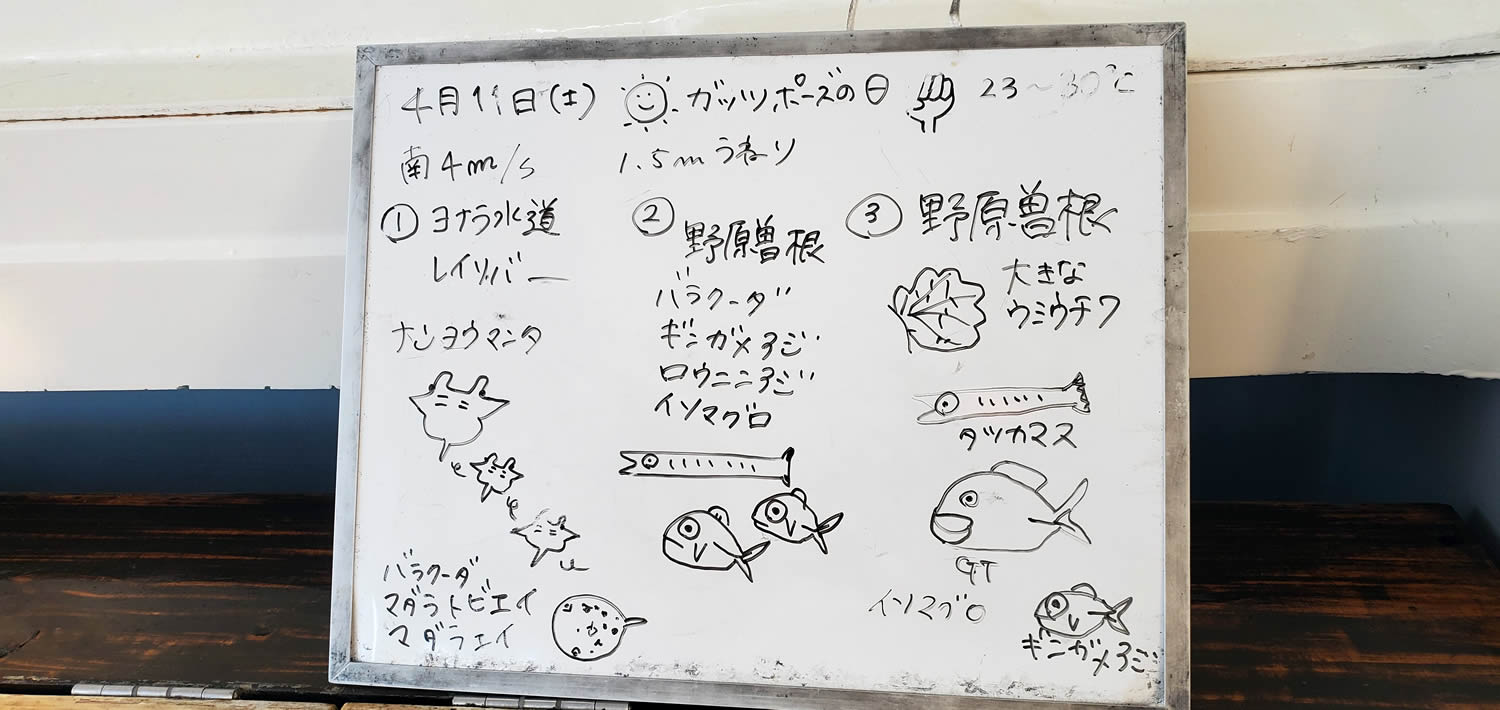 4月11日(土) ガッツポーズの日 23～30℃
南4m/s 1.5mうねり
① ヨナラ水道
レイゾバー
ナンヨウマンタ
バラクーダ
マダラトビエイ
マダラエイ
② 野原曽根
バラクーダ
ギンガメアジ
ロウニンアジ
イソマグロ
③ 野原曽根
大きな
ウミウチワ
タツカマス
GT
イソマグロ
ギンガメアジ